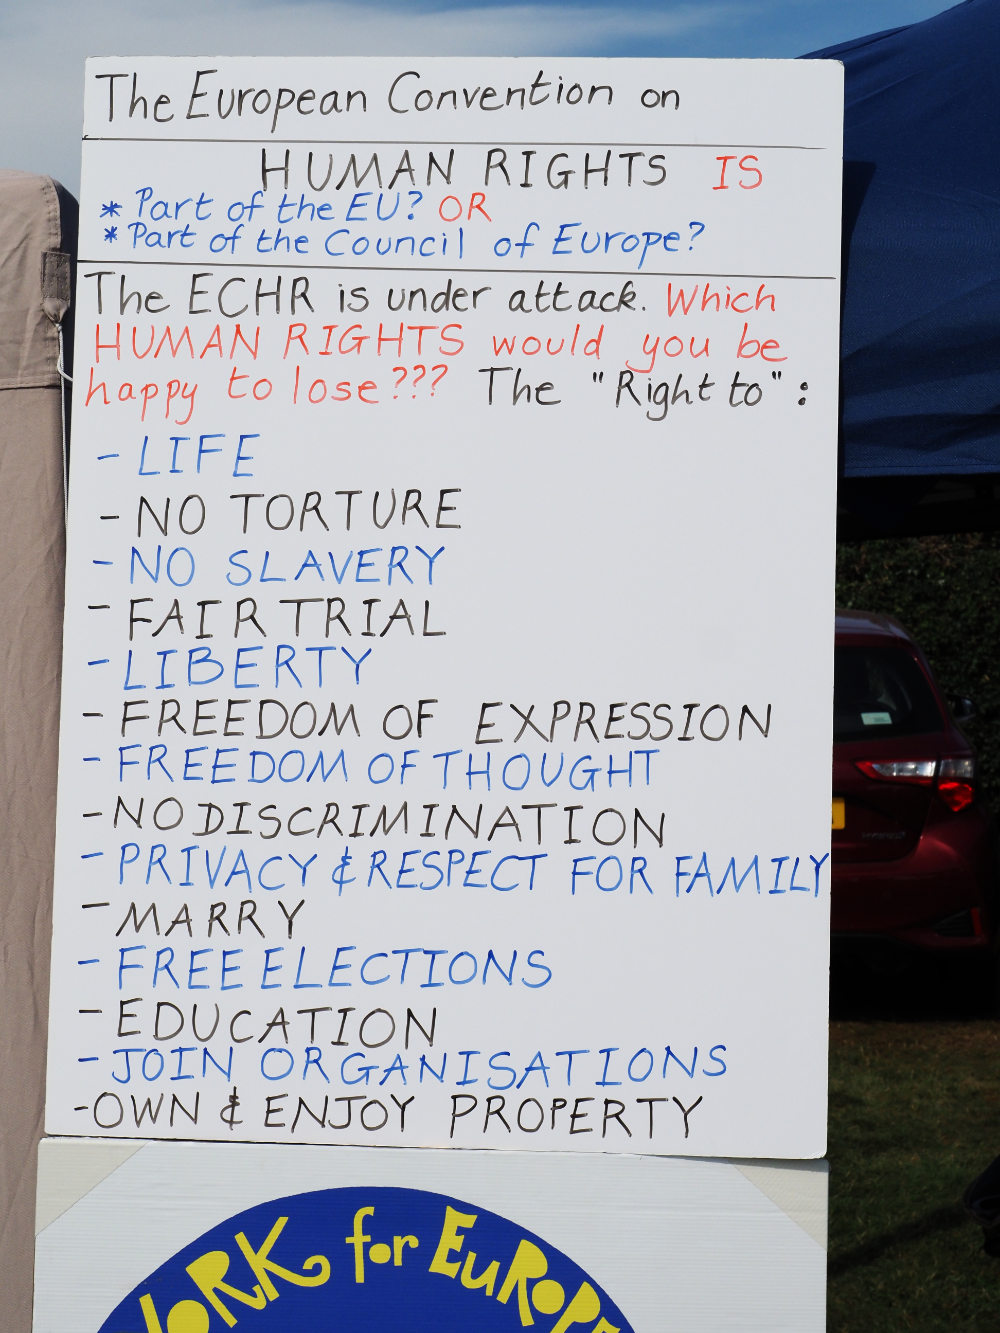 The European Convention on
HUMAN RIGHTS IS
* Part of the EU? OR
* Part of the Council of Europe?
The ECHR is under attack. Which
HUMAN RIGHTS would you be
happy to lose??? The "Right to":
- LIFE
- NO TORTURE
- NO SLAVERY
- FAIR TRIAL
- LIBERTY
- FREEDOM OF EXPRESSION
- FREEDOM OF THOUGHT
- NO DISCRIMINATION
- PRIVACY & RESPECT FOR FAMILY
- MARRY
- FREE ELECTIONS
- EDUCATION
- JOIN ORGANISATIONS
- OWN & ENJOY PROPERTY
for EUROPE